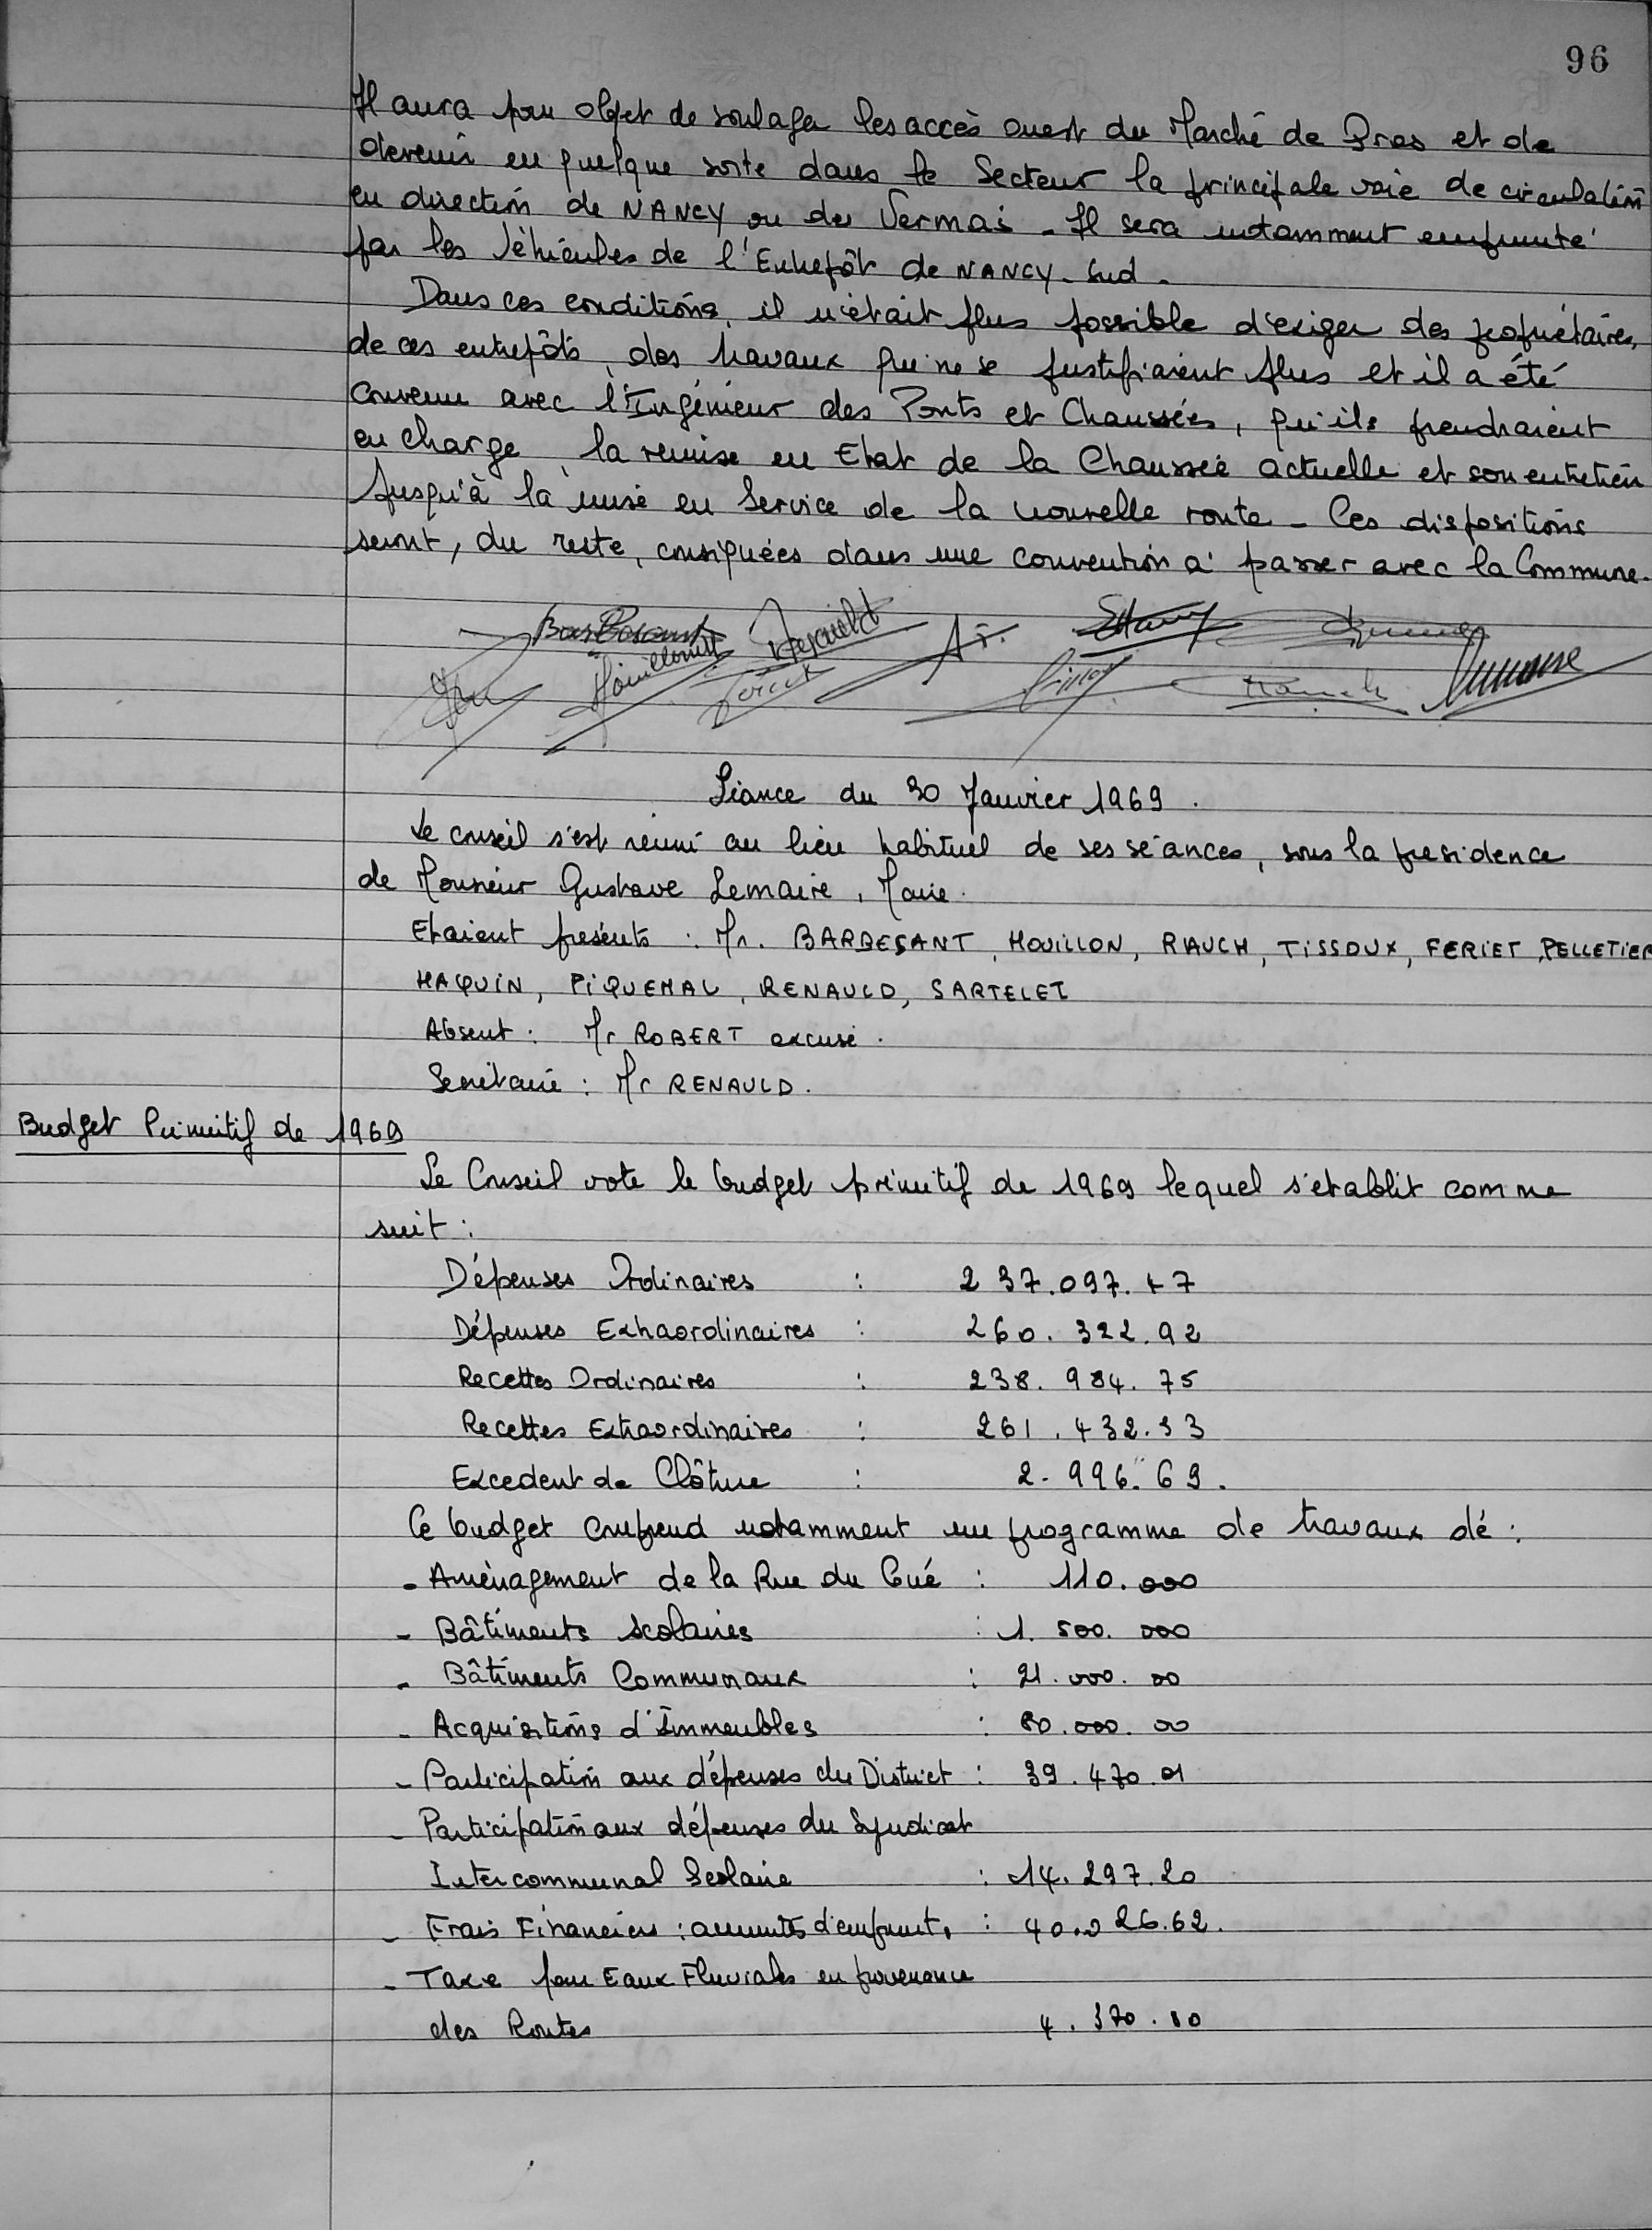 96
Il aura pour objet de soulager les accès ouest du Marché de Gros et de
devenir en quelque sorte dans le Secteur la principale voie de circulation
en direction de NANCY ou du Vermois - Il sera notamment emprunté
par les véhicules de l'Entrepôt de NANCY-Sud.
Dans ces conditions, il n'était plus possible d'exiger des propriétaires,
de ces entrepôts, des travaux qui ne se justifiaient plus et il a été
convenu avec l'Ingénieur des Ponts et Chaussées, qu'ils prendraient
en charge la remise en Etat de la Chaussée actuelle et son entretien
jusqu'à la mise en Service de la nouvelle route - Ces dispositions
seront, du reste, consignées dans une convention à passer avec la Commune.
Séance du 30 Janvier 1969.
Le conseil s'est réuni au lieu habituel de ses séances, sous la présidence
de Monsieur Gustave Lemaire, Maire.
Etaient présents : Mr. BARBESANT, HOUILLON, RAUCH, TISSOUX, FERIET, PELLETIER
HAQUIN, PIQUEMAL, RENAULD, SARTELET
Absent : Mr ROBERT excusé.
Secrétaire : Mr RENAULD.
Budget Primitif de 1969
Le Conseil vote le budget primitif de 1969 lequel s'établit comme
suit :
Dépenses Ordinaires : 237.097.47
Dépenses Extraordinaires : 260.322.92
Recettes Ordinaires : 238.984.75
Recettes Extraordinaires : 261.432.33
Excedent de Clôture : 2.996.69.
Ce budget comprend notamment un programme de travaux de :
- Aménagement de la Rue du Gué : 110.000
- Bâtiments Scolaires : 1.500.000
- Bâtiments Communaux : 21.000.00
- Acquisitions d'Immeubles : 80.000.00
- Participation aux dépenses du District : 39.470.01
- Participation aux dépenses du Syndicat
Intercommunal Scolaire : 14.297.20
- Frais Financiers : annuités d'emprunts : 40.026.62.
- Taxe pour Eaux Pluviales en provenance
des Routes 4.370.80